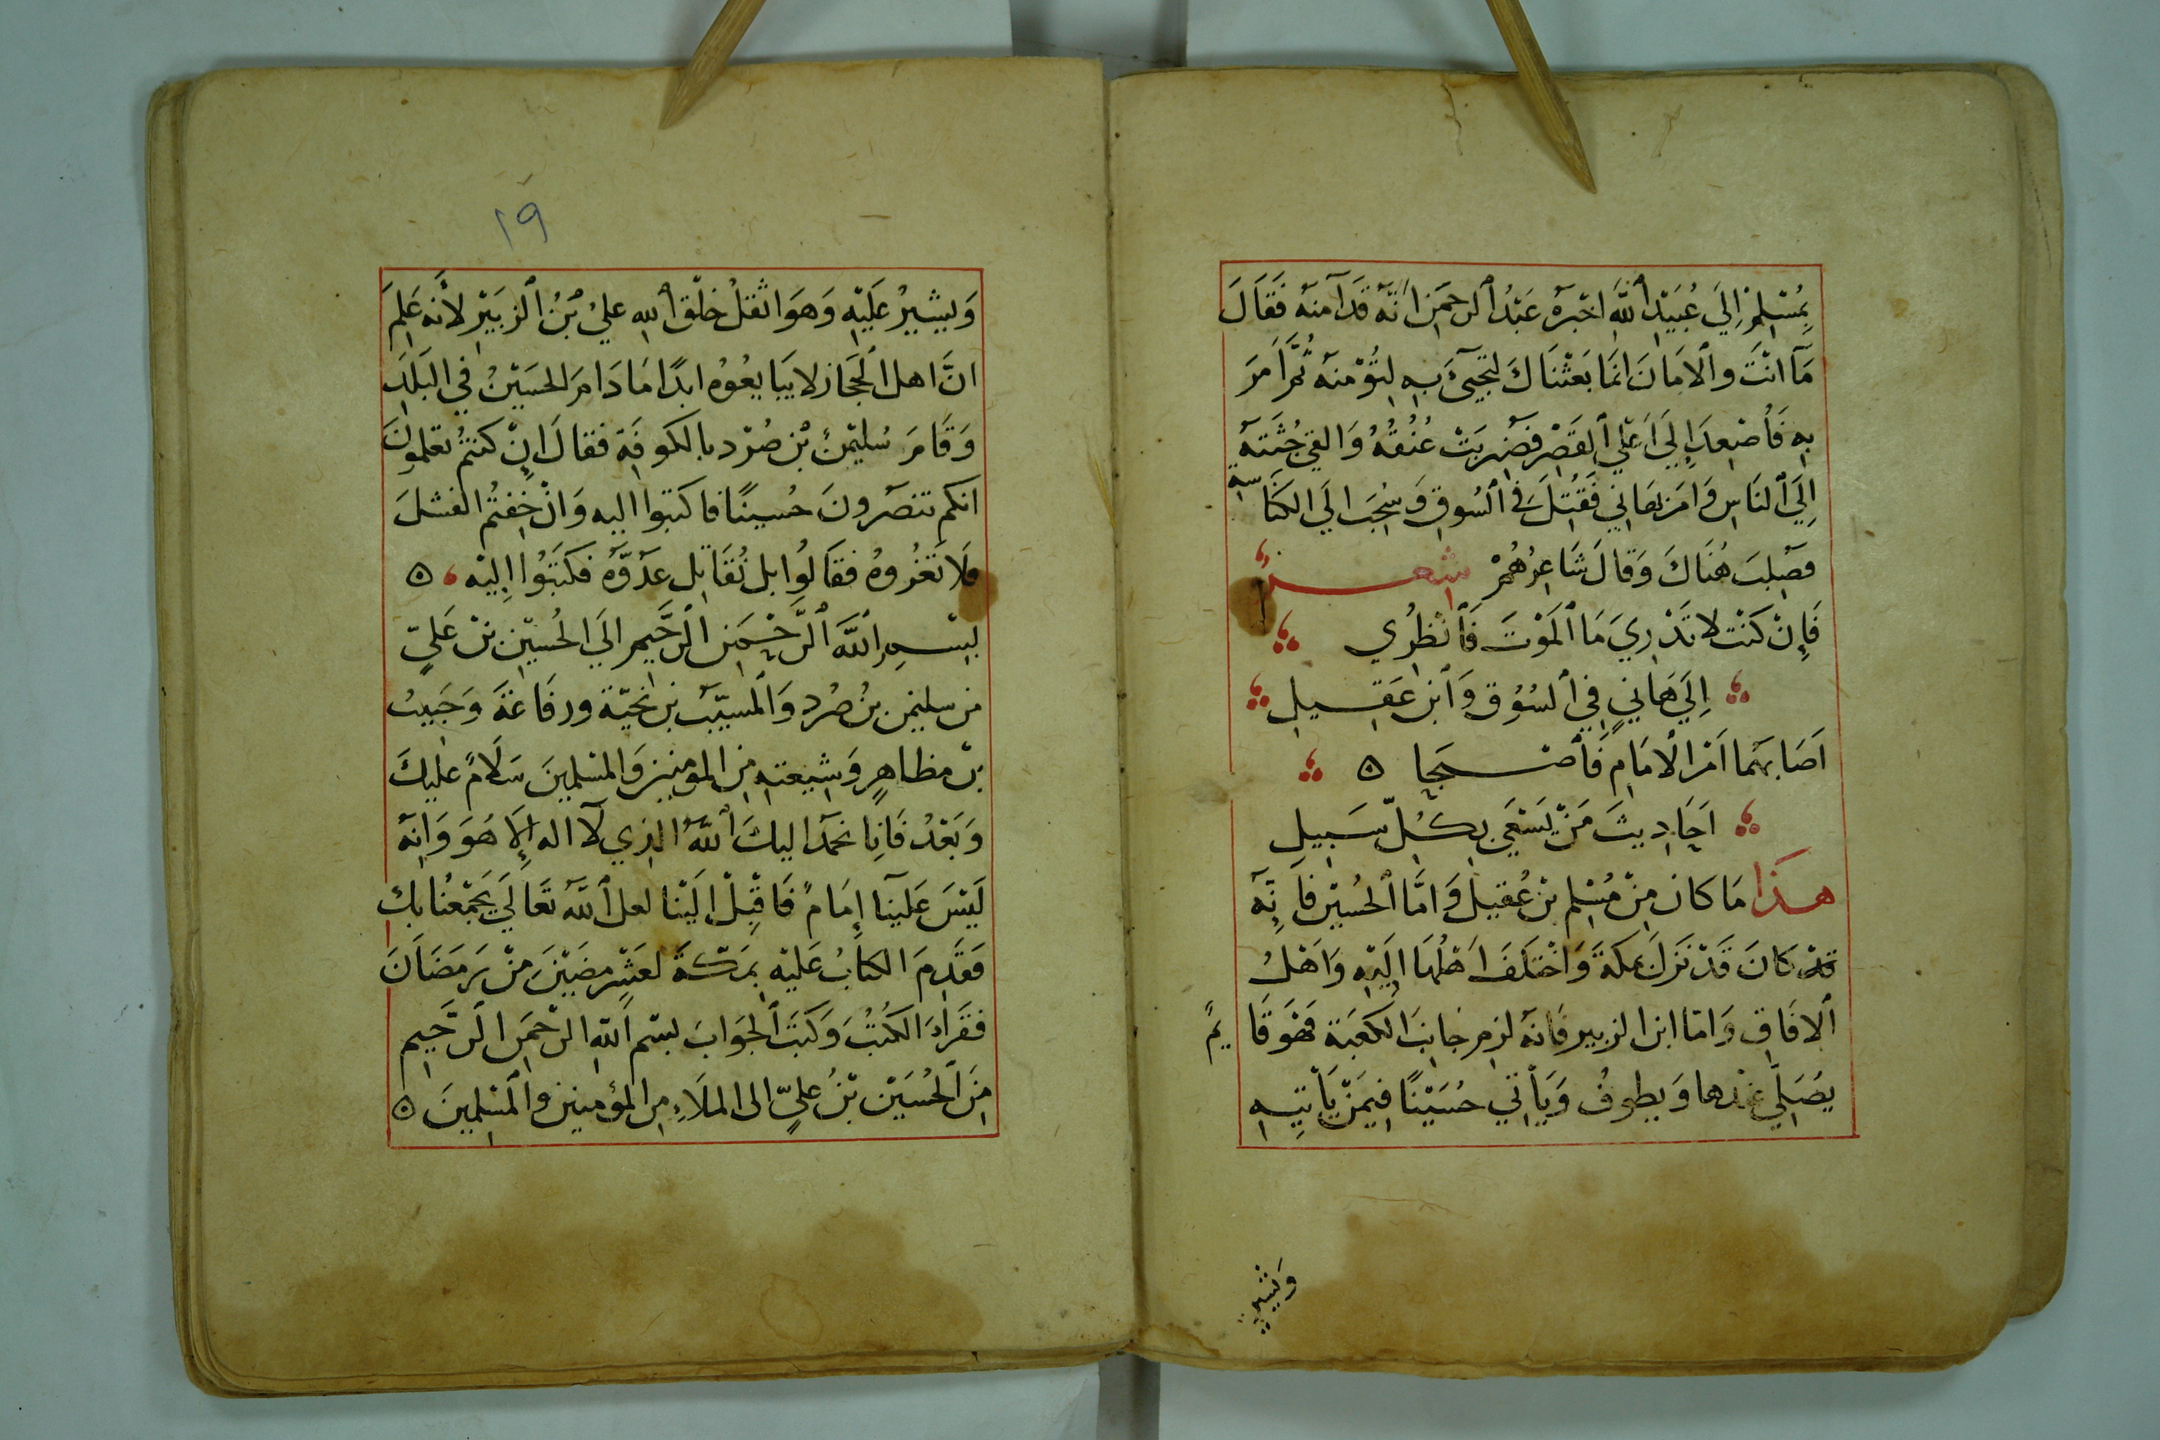 بِمُسْلِمْ اِلَي عُبَيْدِ ٱللَّه اخْبَرهُ عَبْدُ ٱلرحمَن انّه قَدَ آمنهُ فَقَالَ
مَآ انْتَ وٱلامَانَ انمَا بَعَثْنَاكَ لتجئَ بِهِ لِتُؤْمنهُ ثُمَّ اَمَرَ
بِهِ فَأُصْعِدَ اِلَي اَعْلَي ٱلقَصْر فَضُرِبَتْ عُنُقُهُ وَالقِي جُثَّتهُ
اِلَي ٱلنَاسِ وَامَر بهَانِي فَقُتِلَ فِي ٱلسُوقِ وَسُحِبَ الَي الكنَاسه
فصُلِبَ هُنَاكَ وَقالَ شَاعِرُهُمْ شعر
فَإِنْ كنْت لا تَدْرِيَ مَا ٱلمَوْتَ فَٱنْظُرِي
اِلَي هَانيٍ فِي ٱلسُوْق وَٱبْن عَقِيلِ
اَصَابَهَما اَمْرٱلامَامِ فَأصْبحَا ٥
اَحَادِيثَ مَنْ يَسْعَي بِكُلّ سَبِيل
هذَا مَا كانَ مِنْ مُسْلِم بْن عُقيل وَامَّا ٱلحُسيْن فَاِنّهُ
قدْ كانَ قَدْ نَزَلَ بمكةَ وَاخْتلَفَ اَهْلُهَا اِلَيْهِ وَاهْلُ
ٱلافَاقِ وَامّا ابن الزبير فانهُ لزم جَانِبَ الكعْبَة فهُوَ قَايمٌ
يصَلّي عندها وَيطوفُ وَيَأتي حُسَيْنًا فِيمَنْ يَأتِيهِ
وَيشير
١٩
وَيشِيرُ عَلَيْهِ وَهوَ اثقلُ خلْق ٱلله عليْ بْنُ ٱلزبَيْرِ لأَنهُ عَلِمَ
انَّ اهلَ ٱلحجَاز لا يبَايعُوهُ ابدًا مَا دَامَ الحسَيْنُ فِي البَلَدِ
وَقَامَ سُليْمنُ بْن صُرْد بالكوفَة فقالَ اِنْ كنتمُ تعْلمونَ
انكم تنصرُونَ حُسينًا فاكتبوا اليه وَانْ خِفتُم الفشلَ
فلَا تَغُروهُ فقَالُوا بل نُقَاتِل عدُوّهُ فكَتَبُوا اِليْه ٥
بسْمِ ٱللَّه ٱلرَّحْمَن ٱلرَّحَيم الَي الحُسيْن بْن عَليٍّ
من سليمن بن صُرْد وَٱلمسيَّب بن نجيّة ورفَاعَةَ وَحَبيبُ
بنْ مظاهِرٍ وَشِيعتهِ مِن المؤمنين وَالمسْلمينَ سَلَامٌ عَليكَ
وَبَعْدُ فَانِا نحْمَدُ اليكَ ٱللَّهَ الذِي لآ اله اِلّا هُوَ وَانهُ
لَيْسَ عَلَينَا اِمَامٌ فَاقْبِلْ الَيْنا لعل ٱللَّهَ تعَالَي يَجْمَعْنا بِك
فقَدِمَ الكتابُ عَليْهِ بِمَكّةَ لعَشْرٍ مضيْنَ مِنْ رَمَضَانَ
فقرَاَ الكُتُبَ وَكتبَ ٱلجوَابَ بسْم ٱللهِ الرّحْمَن ٱلرَّحِيم
مِنَ ٱلحُسَيْن بْنُ عليٍّ الى الملَاءِ مِن المؤمنين وٱلمسْلِمينَ ٥